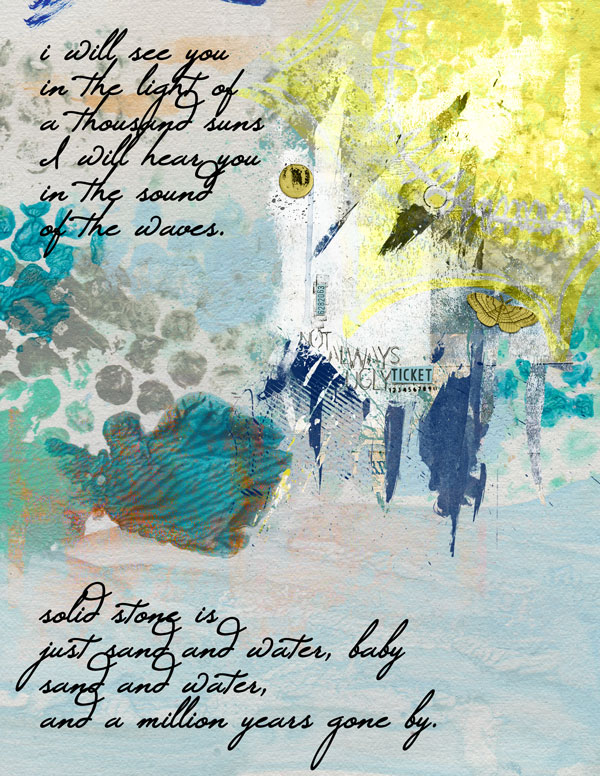 i will see you
in the light of
a thousand suns
I will hear you
in the sound
of the waves.
NOT
ALWAYS
UGLY
TICKET
1234567890
solid stone is
just sand and water, baby
sand and water,
and a million years gone by.